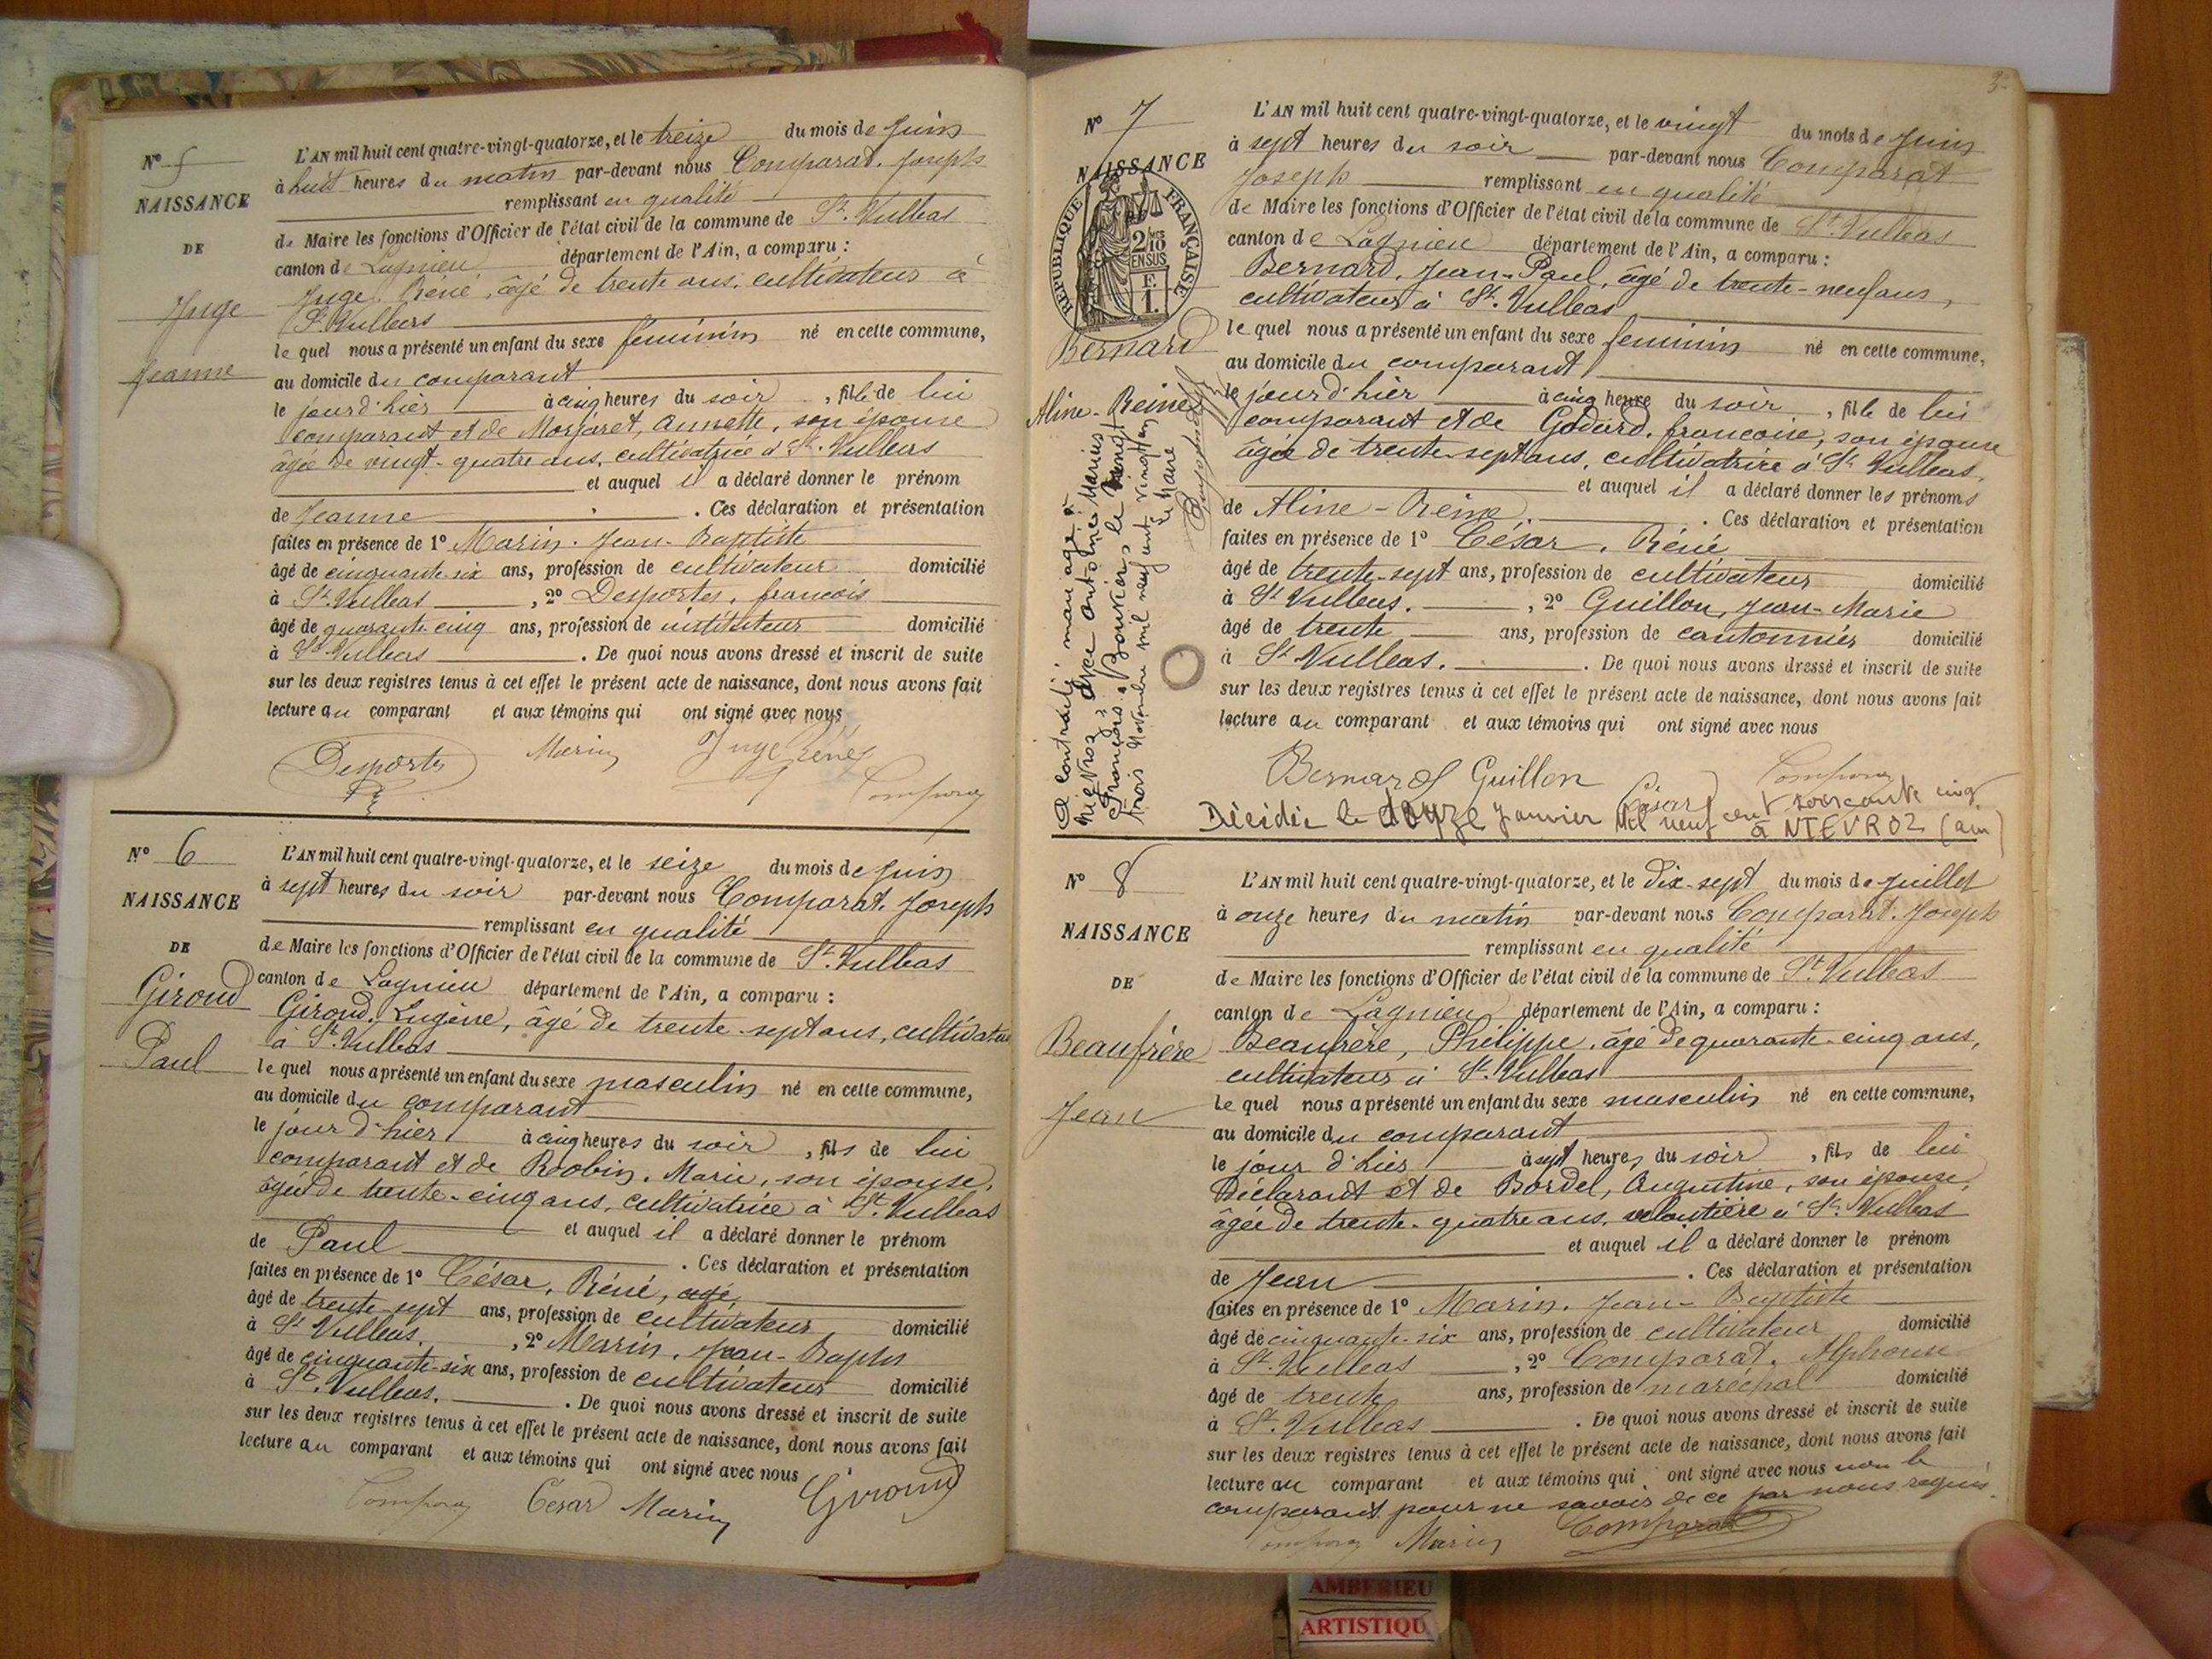 N° 5
NAISSANCE
DE
Juge
Jeanne
L'AN mil huit cent quatre-vingt-quatorze, et le treize du mois de Juin
à huit heures du matin par-devant nous Comparat. Joseph
remplissant en qualité
de Maire les fonctions d'Officier de l'état civil de la commune de St. Vulbas
canton de Lagnieu département de l'Ain, a comparu :
Juge. René, âgé de trente ans. cultivateur à
St. Vulbas
lequel nous a présenté un enfant du sexe féminin né en cette commune,
au domicile du comparant
le jour d'hier à cinq heures du soir, fille de lui
comparant et de Morjaret, Annette, son épouse
âgée de vingt-quatre ans, cultivatrice à St. Vulbas
et auquel il a déclaré donner le prénom
de Jeanne. Ces déclaration et présentation
faites en présence de 1° Marin. Jean-Baptiste
âgé de cinquante-six ans, profession de cultivateur domicilié
à St. Vulbas, 2° Desportes, françois
âgé de quarante-cinq ans, profession de instituteur domicilié
à St. Vulbas. De quoi nous avons dressé et inscrit de suite
sur les deux registres tenus à cet effet le présent acte de naissance, dont nous avons fait
lecture au comparant et aux témoins qui ont signé avec nous
Desportes Marin Juge René Comparat
N° 6
NAISSANCE
DE
Giroud
Paul
L'AN mil huit cent quatre-vingt-quatorze, et le seize du mois de Juin
à sept heures du soir par-devant nous Comparat. Joseph
remplissant en qualité
de Maire les fonctions d'Officier de l'état civil de la commune de St. Vulbas
canton de Lagnieu département de l'Ain, a comparu :
Giroud. Eugène, âgé de trente-sept ans, cultivateur
à St. Vulbas
lequel nous a présenté un enfant du sexe masculin né en cette commune,
au domicile du comparant
le jour d'hier à cinq heures du soir, fils de lui
comparant et de Roobin. Marie, son épouse,
âgée de trente-cinq ans, cultivatrice à St. Vulbas
et auquel il a déclaré donner le prénom
de Paul. Ces déclaration et présentation
faites en présence de 1° César, Réné, agé,
âgé de trente-sept ans, profession de cultivateur domicilié
à St Vulbas, 2° Marin. Jean-Baptis
âgé de cinquante-six ans, profession de cultivateur domicilié
à St. Vulbas. De quoi nous avons dressé et inscrit de suite
sur les deux registres tenus à cet effet le présent acte de naissance, dont nous avons fait
lecture au comparant et aux témoins qui ont signé avec nous
Comparat César Marin Giroud
3
N° 7
NAISSANCE
RÉPUBLIQUE FRANÇAISE
2/10
EN SUS
F.
1.
Bernard
Aline-Reine
A contracté mariage à
Niévroz, avec Antoine Marius
François Bouvier, le vingt
trois Novembre mil neuf cent vingt
Le Maire
L'AN mil huit cent quatre-vingt-quatorze, et le vingt du mois de Juin
à sept heures du soir par-devant nous Comparat
Joseph remplissant en qualité
de Maire les fonctions d'Officier de l'état civil de la commune de St. Vulbas
canton de Lagnieu département de l'Ain, a comparu :
Bernard, Jean-Paul, âgé de trente-neuf ans,
cultivateur à St. Vulbas
lequel nous a présenté un enfant du sexe feminin né en cette commune,
au domicile du comparant
le jour d'hier à cinq heure du soir, fille de lui
comparant et de Godard, francoise, son épouse
âgée de trente-sept ans, cultivatrice à St. Vulbas,
et auquel il a déclaré donner les prénoms
de Aline-Reine. Ces déclaration et présentation
faites en présence de 1° César. Réné
âgé de trente-sept ans, profession de cultivateur domicilié
à St Vulbas, 2° Guillon, Jean-Marie
âgé de trente ans, profession de cantonnier domicilié
à St Vulbas. De quoi nous avons dressé et inscrit de suite
sur les deux registres tenus à cet effet le présent acte de naissance, dont nous avons fait
lecture au comparant et aux témoins qui ont signé avec nous
Bernard Guillon César Comparat
Décédée le douze Janvier Mil neuf cent soixante cinq
à NIEVROZ (ain)
N° 8
NAISSANCE
DE
Beaufrère
Jean
L'AN mil huit cent quatre-vingt-quatorze, et le dix-sept du mois de Juillet
à onze heures du matin par-devant nous Comparat. Joseph
remplissant en qualité
de Maire les fonctions d'Officier de l'état civil de la commune de St. Vulbas
canton de Lagnieu département de l'Ain, a comparu :
Beaufrère, Philippe, âgé de quarante-cinq ans,
cultivateur à St. Vulbas
lequel nous a présenté un enfant du sexe masculin né en cette commune,
au domicile du comparant
le jour d'hier à sept heures du soir, fils de lui
déclarant et de Bordel, Augustine, son épouse,
âgée de trente-quatre ans, veloutière à St. Vulbas
et auquel il a déclaré donner le prénom
de Jean. Ces déclaration et présentation
faites en présence de 1° Marin. Jean-Baptiste
âgé de cinquante-six ans, profession de cultivateur domicilié
à St. Vulbas, 2° Comparat. Alphonse
âgé de trente ans, profession de maréchal domicilié
à St. Vulbas. De quoi nous avons dressé et inscrit de suite
sur les deux registres tenus à cet effet le présent acte de naissance, dont nous avons fait
lecture au comparant et aux témoins qui ont signé avec nous non le
comparant pour ne savoir de ce par nous requis.
Comparat Marin Comparat
AMBERIEU
ARTISTIQU